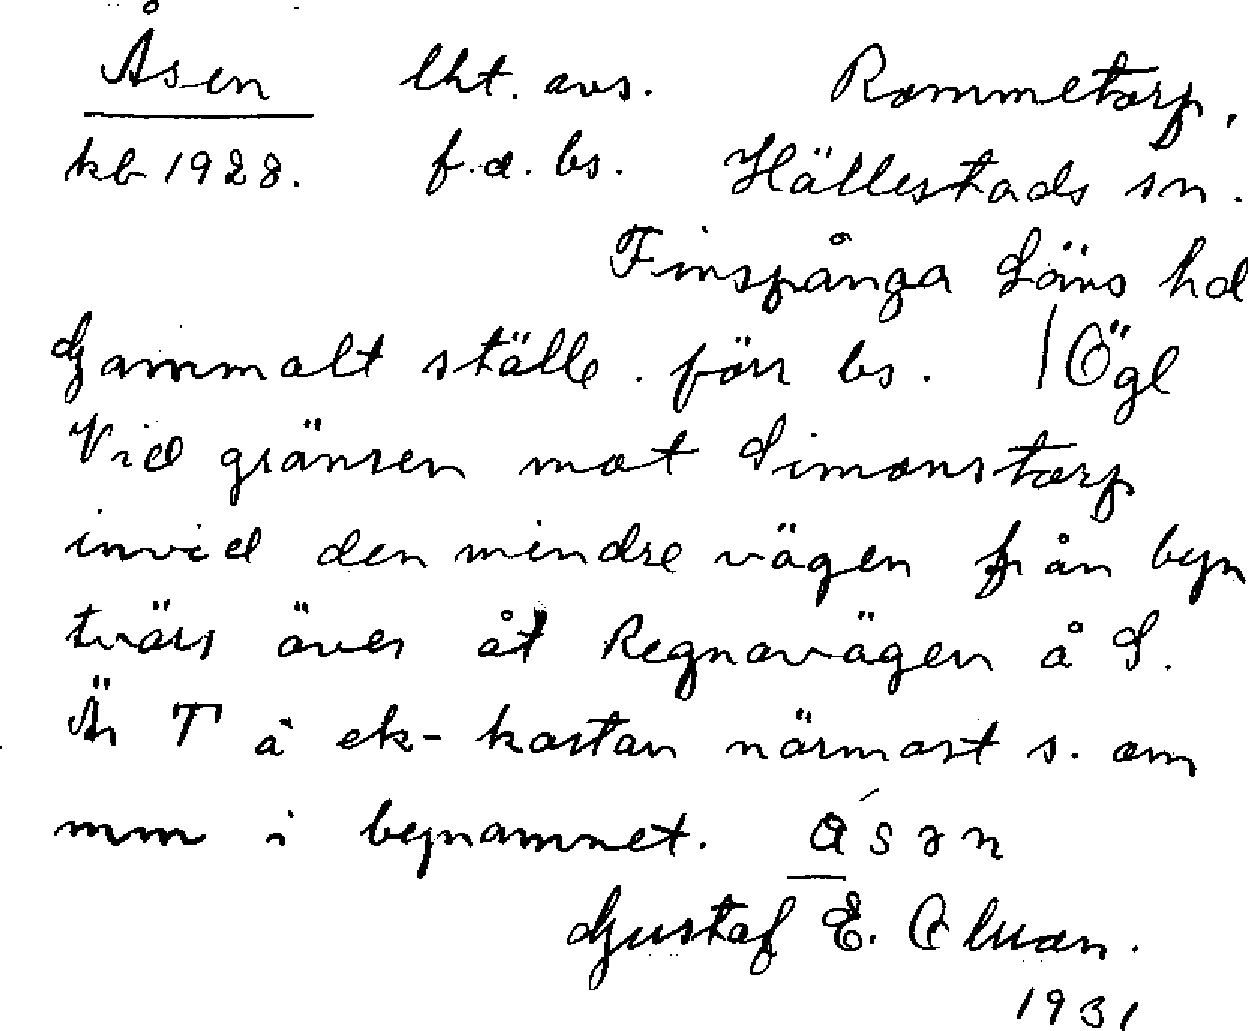 Åsen lht. avs. Rommetorp,
kb 1928. f.d. bs. Hällestads sn.
Finspånga Läns hd
Gammalt ställe. förr bs. | Ögl
Vid gränsen mot Simonstorp
invid den mindre vägen från byn
tvärs över åt Regnavägen å S.
Är T å ek-kartan närmast s. om
mm i bynamnet.
Gustaf E.
1931